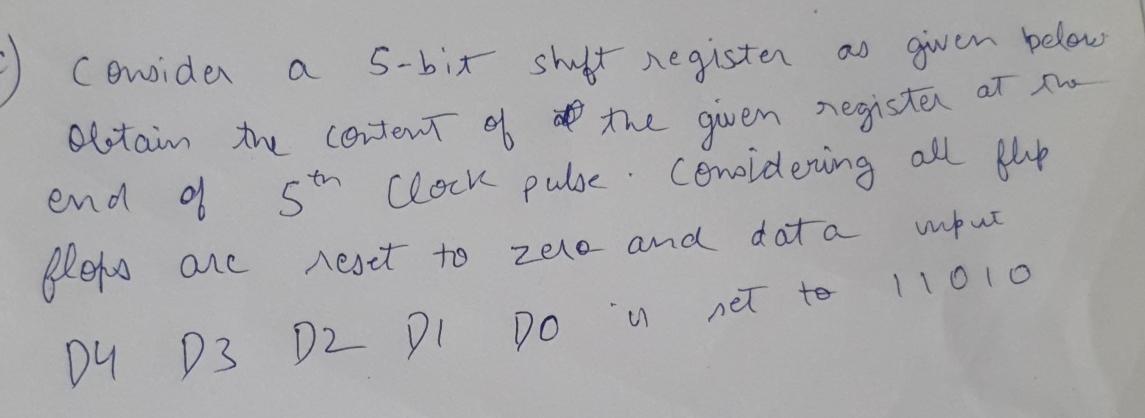 ) Consider a 5-bit shift register as given below
Obtain the content of the given register at the
end of 5th Clock pulse. Considering all flip
flops are reset to zero and data input
D4 D3 D2 D1 D0 is set to 11010